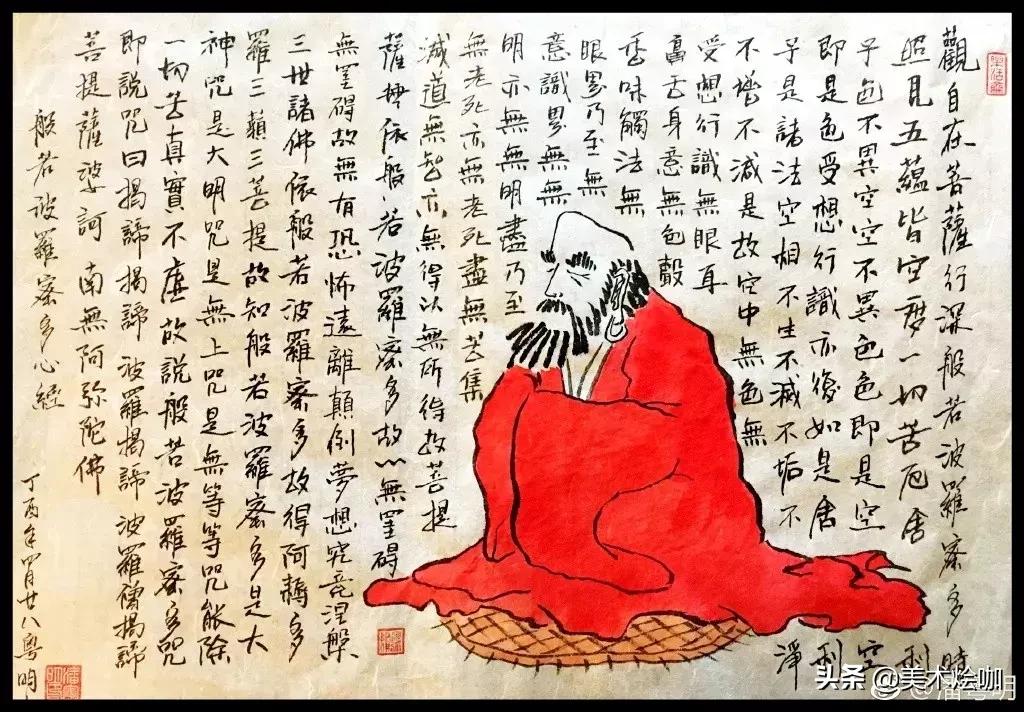 觀自在菩薩行深般若波羅蜜多時
照見五蘊皆空度一切苦厄舍利
子色不異空空不異色即是空空
即是色受想行識亦復如是舍利
子是諸法空相不生不滅不垢不淨
不增不減是故空中無色無
受想行識無眼耳
鼻舌身意無色聲
香味觸法無
眼界乃至無
意識界無無
明亦無無明盡乃至
無老死亦無老死盡無苦集
滅道無智亦無得以無所得故菩提
薩埵依般若波羅蜜多故心無罣碍
無罣碍故無有恐怖遠離顛倒夢想究竟涅槃
三世諸佛依般若波羅蜜多故得阿耨多
羅三藐三菩提故知般若波羅蜜多是大
神咒是大明咒是無上咒是無等等咒能除
一切苦真實不虛故說般若波羅蜜多咒
即說咒曰揭諦揭諦波羅揭諦波羅僧揭諦
菩提薩婆訶 南無阿弥陀佛
般若波羅蜜多心經
丁酉年四月廿八粵明
头条 @美术烩咖